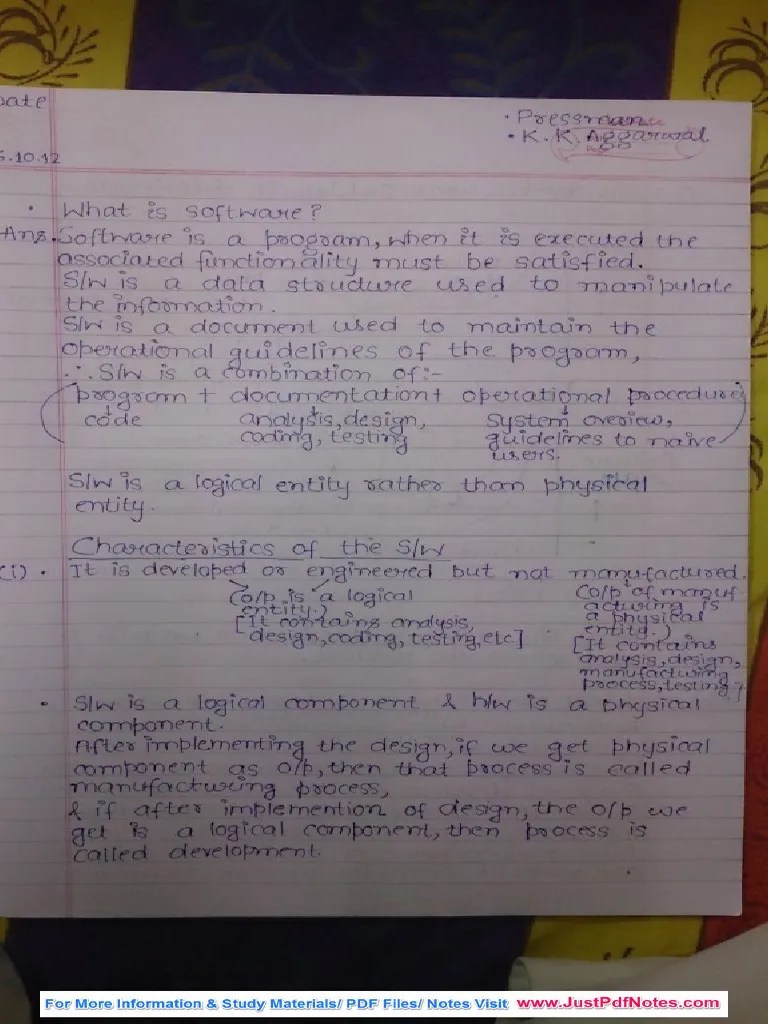 Date
• Pressman
• K.K. Aggarwal
5.10.12
• What is software?
Ans. Software is a program, when it is executed the
associated functionality must be satisfied.
S/W is a data structure used to manipulate
the information.
S/W is a document used to maintain the
operational guidelines of the program,
∴ S/W is a combination of:-
program + documentation + operational procedure
code analysis, design, system overview,
coding, testing guidelines to naive
users.
S/W is a logical entity rather than physical
entity.
Characteristics of the S/W
(i) • It is developed or engineered but not manufactured.
(o/p is a logical (o/p of manuf
entity.) acturing is
[It contains analysis, a physical
design, coding, testing, etc] entity.)
[It contains
analysis, design,
manufacturing
process, testing]
• S/W is a logical component & h/w is a physical
component.
After implementing the design, if we get physical
component as o/p, then that process is called
manufacturing process,
& if after implemention of design, the o/p we
get is a logical component, then process is
called development.
For More Information & Study Materials/ PDF Files/ Notes Visit www.JustPdfNotes.com